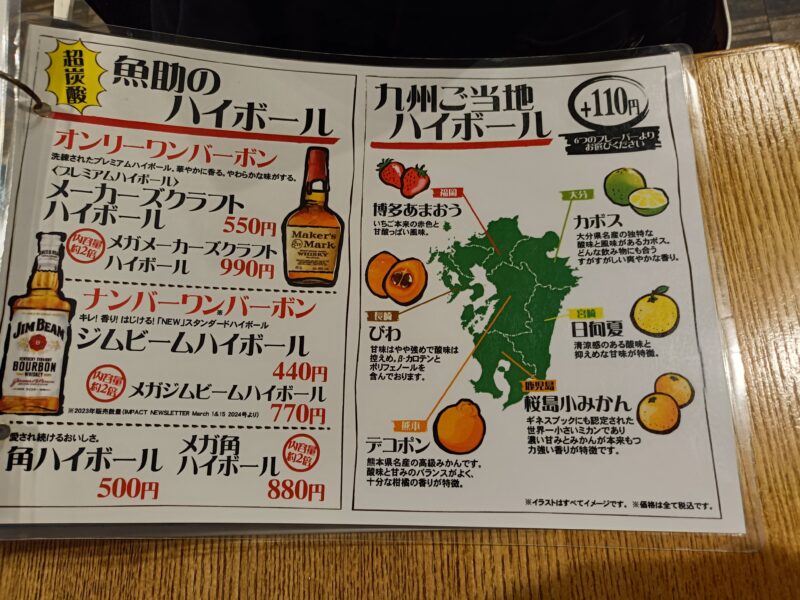 超炭酸
魚助の
ハイボール
オンリーワンバーボン
洗練されたプレミアムハイボール。華やかに香る。やわらかな味がする。
〈プレミアムハイボール〉
メーカーズクラフト
ハイボール
550円
内容量
約2倍
メガメーカーズクラフト
ハイボール
990円
Maker's
Mark
WHISKY
ナンバーワン※バーボン
キレ!香り!はじける!「NEW」スタンダードハイボール
ジムビームハイボール
440円
内容量
約2倍
メガジムビームハイボール
770円
※2023年販売数量(IMPACT NEWSLETTER March 1&15 2024号より)
JIM BEAM
KENTUCKY STRAIGHT
BOURBON
WHISKEY
愛され続けるおいしさ。
角ハイボール
500円
メガ角
ハイボール
内容量
約2倍
880円
九州ご当地
ハイボール
+110円
6つのフレーバーより
お選びください
福岡
博多あまおう
いちご本来の赤色と
甘酸っぱい風味。
大分
カボス
大分県名産の独特な
酸味と風味があるカボス。
どんな飲み物にも合う
すがすがしい爽やかな香り。
長崎
びわ
甘味はやや強めで酸味は
控えめ。β-カロテンと
ポリフェノールを
含んでおります。
宮崎
日向夏
清涼感のある酸味と
抑えめな甘味が特徴。
熊本
デコポン
熊本県名産の高級みかんです。
酸味と甘みのバランスがよく、
十分な柑橘の香りが特徴。
鹿児島
桜島小みかん
ギネスブックにも認定された
世界一小さいミカンであり
濃い甘みとみかんが本来もつ
力強い香りが特徴です。
※イラストはすべてイメージです。 ※価格は全て税込です。